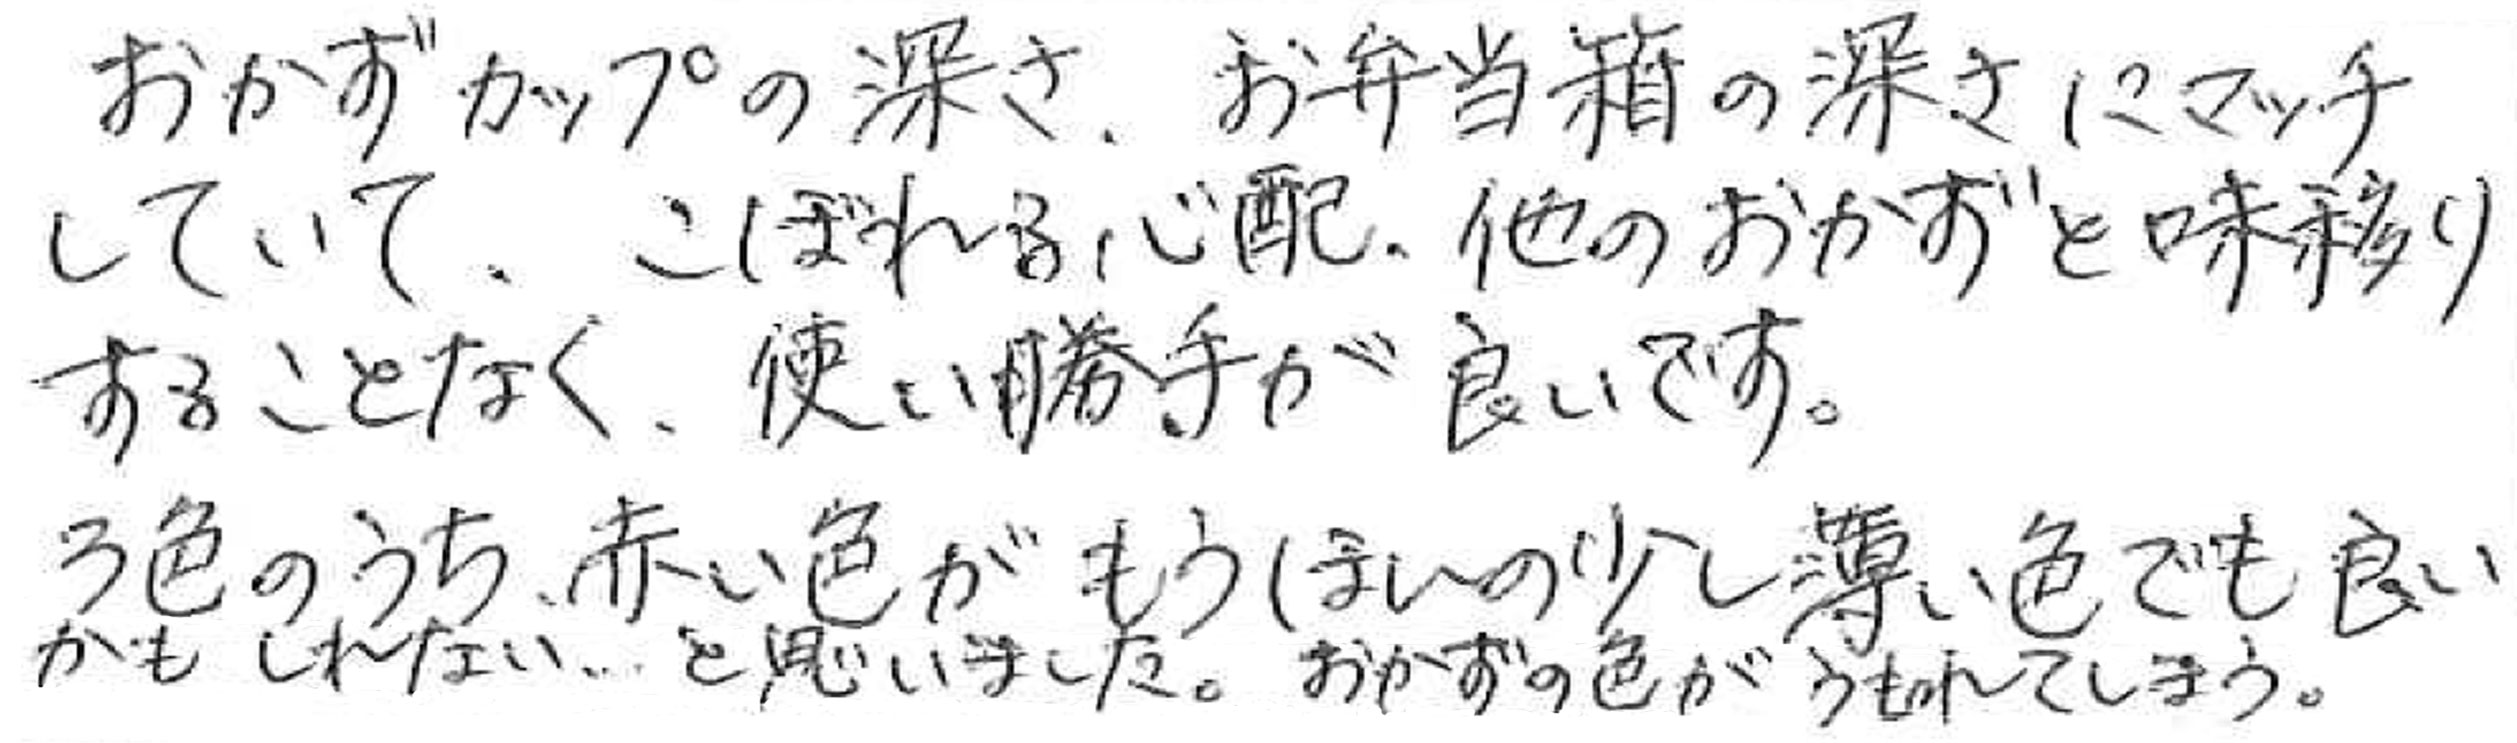 おかずカップの深さ、お弁当箱の深さにマッチ
していて、こぼれる心配、他のおかずと味移り
することなく、使い勝手が良いです。
3色のうち、赤い色がもうほんの少し薄い色でも良い
かもしれない…と思いました。おかずの色がうもれてしまう。